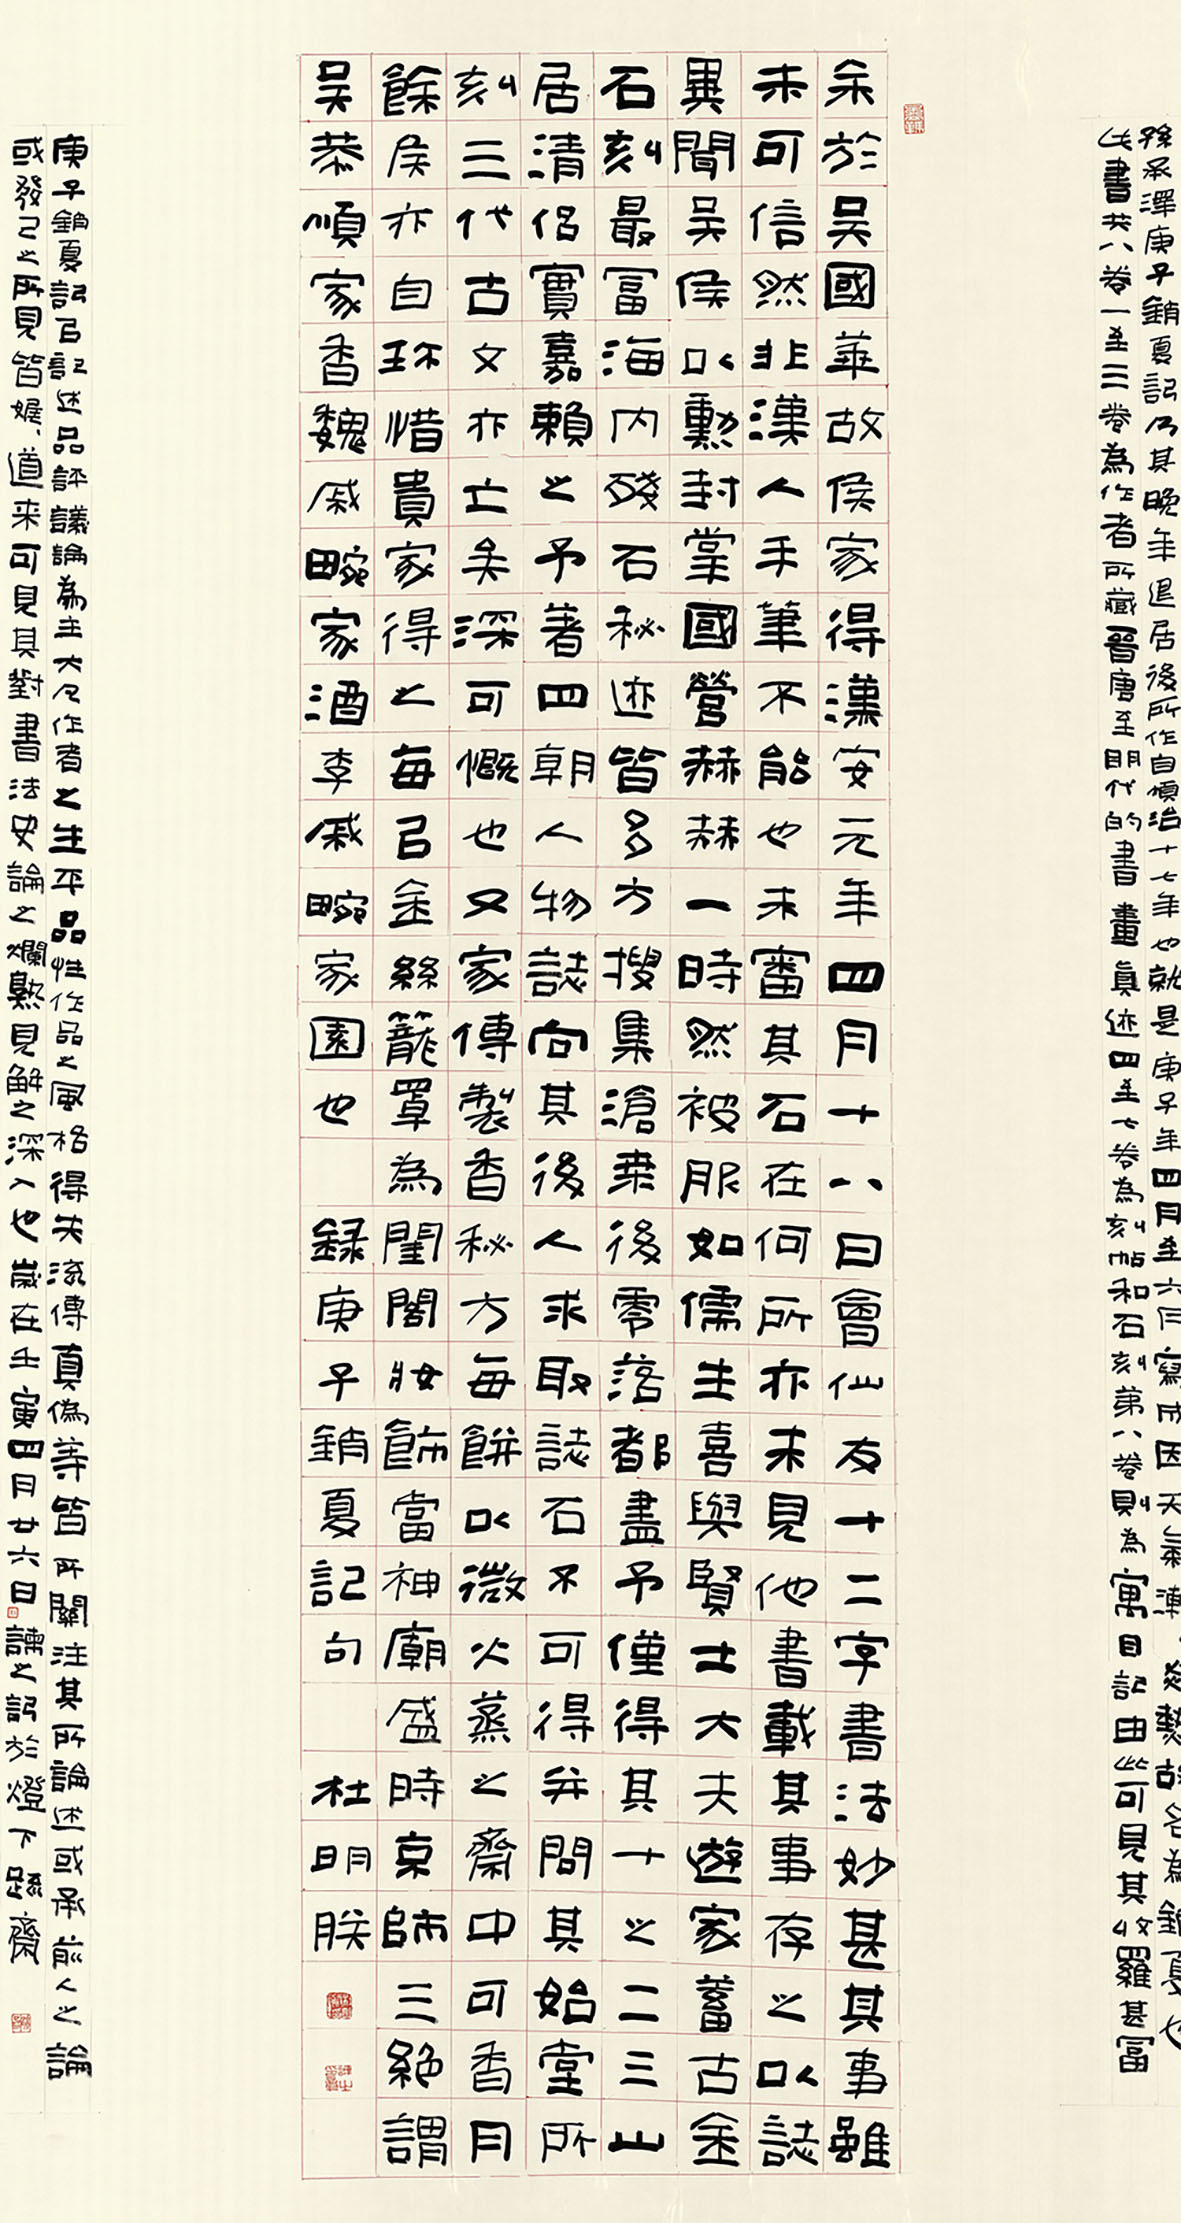 孫承澤庚子銷夏記乃其晚年退居後所作自順治十七年也就是庚子年四月至六月寫成因天氣漸炎熱故名為銷夏也
此書共八卷一至三卷為作者所藏晉唐至明代的書畫真迹四至七卷為刻帖和石刻第八卷則為寓目記由此可見其收羅甚富
余於吳國華故侯家得漢安元年四月十八日會仙友十二字書法妙甚其事雖
未可信然非漢人手筆不能也未審其石在何所亦未見他書載其事存之以誌
異聞吳侯以勳封掌國營赫赫一時然被服如儒生喜與賢士大夫遊家蓄古金
石刻最富海內殘石秘迹皆多方搜集滄桑後零落都盡予僅得其十之二三山
居清侶實嘉賴之予著四朝人物誌向其後人求取誌石不可得并問其始堂所
刻三代古文亦亡矣深可慨也又家傳製香秘方每餅以微火蒸之齋中可香月
餘侯亦自珎惜貴家得之每以金絲籠罩為閨閣妝飾當神廟盛時京師三絕謂
吳恭順家香魏戚畹家酒李戚畹家園也 錄庚子銷夏記句 杜明朕
庚子銷夏記以記述品評議論為主大凡作者之生平品性作品之風格得失流傳真偽等皆所關注其所論述或承前人之論
或發己之所見皆娓娓道来可見其對書法史論之爛熟見解之深入也歲在壬寅四月廿六日諫之記於燈下疏齋